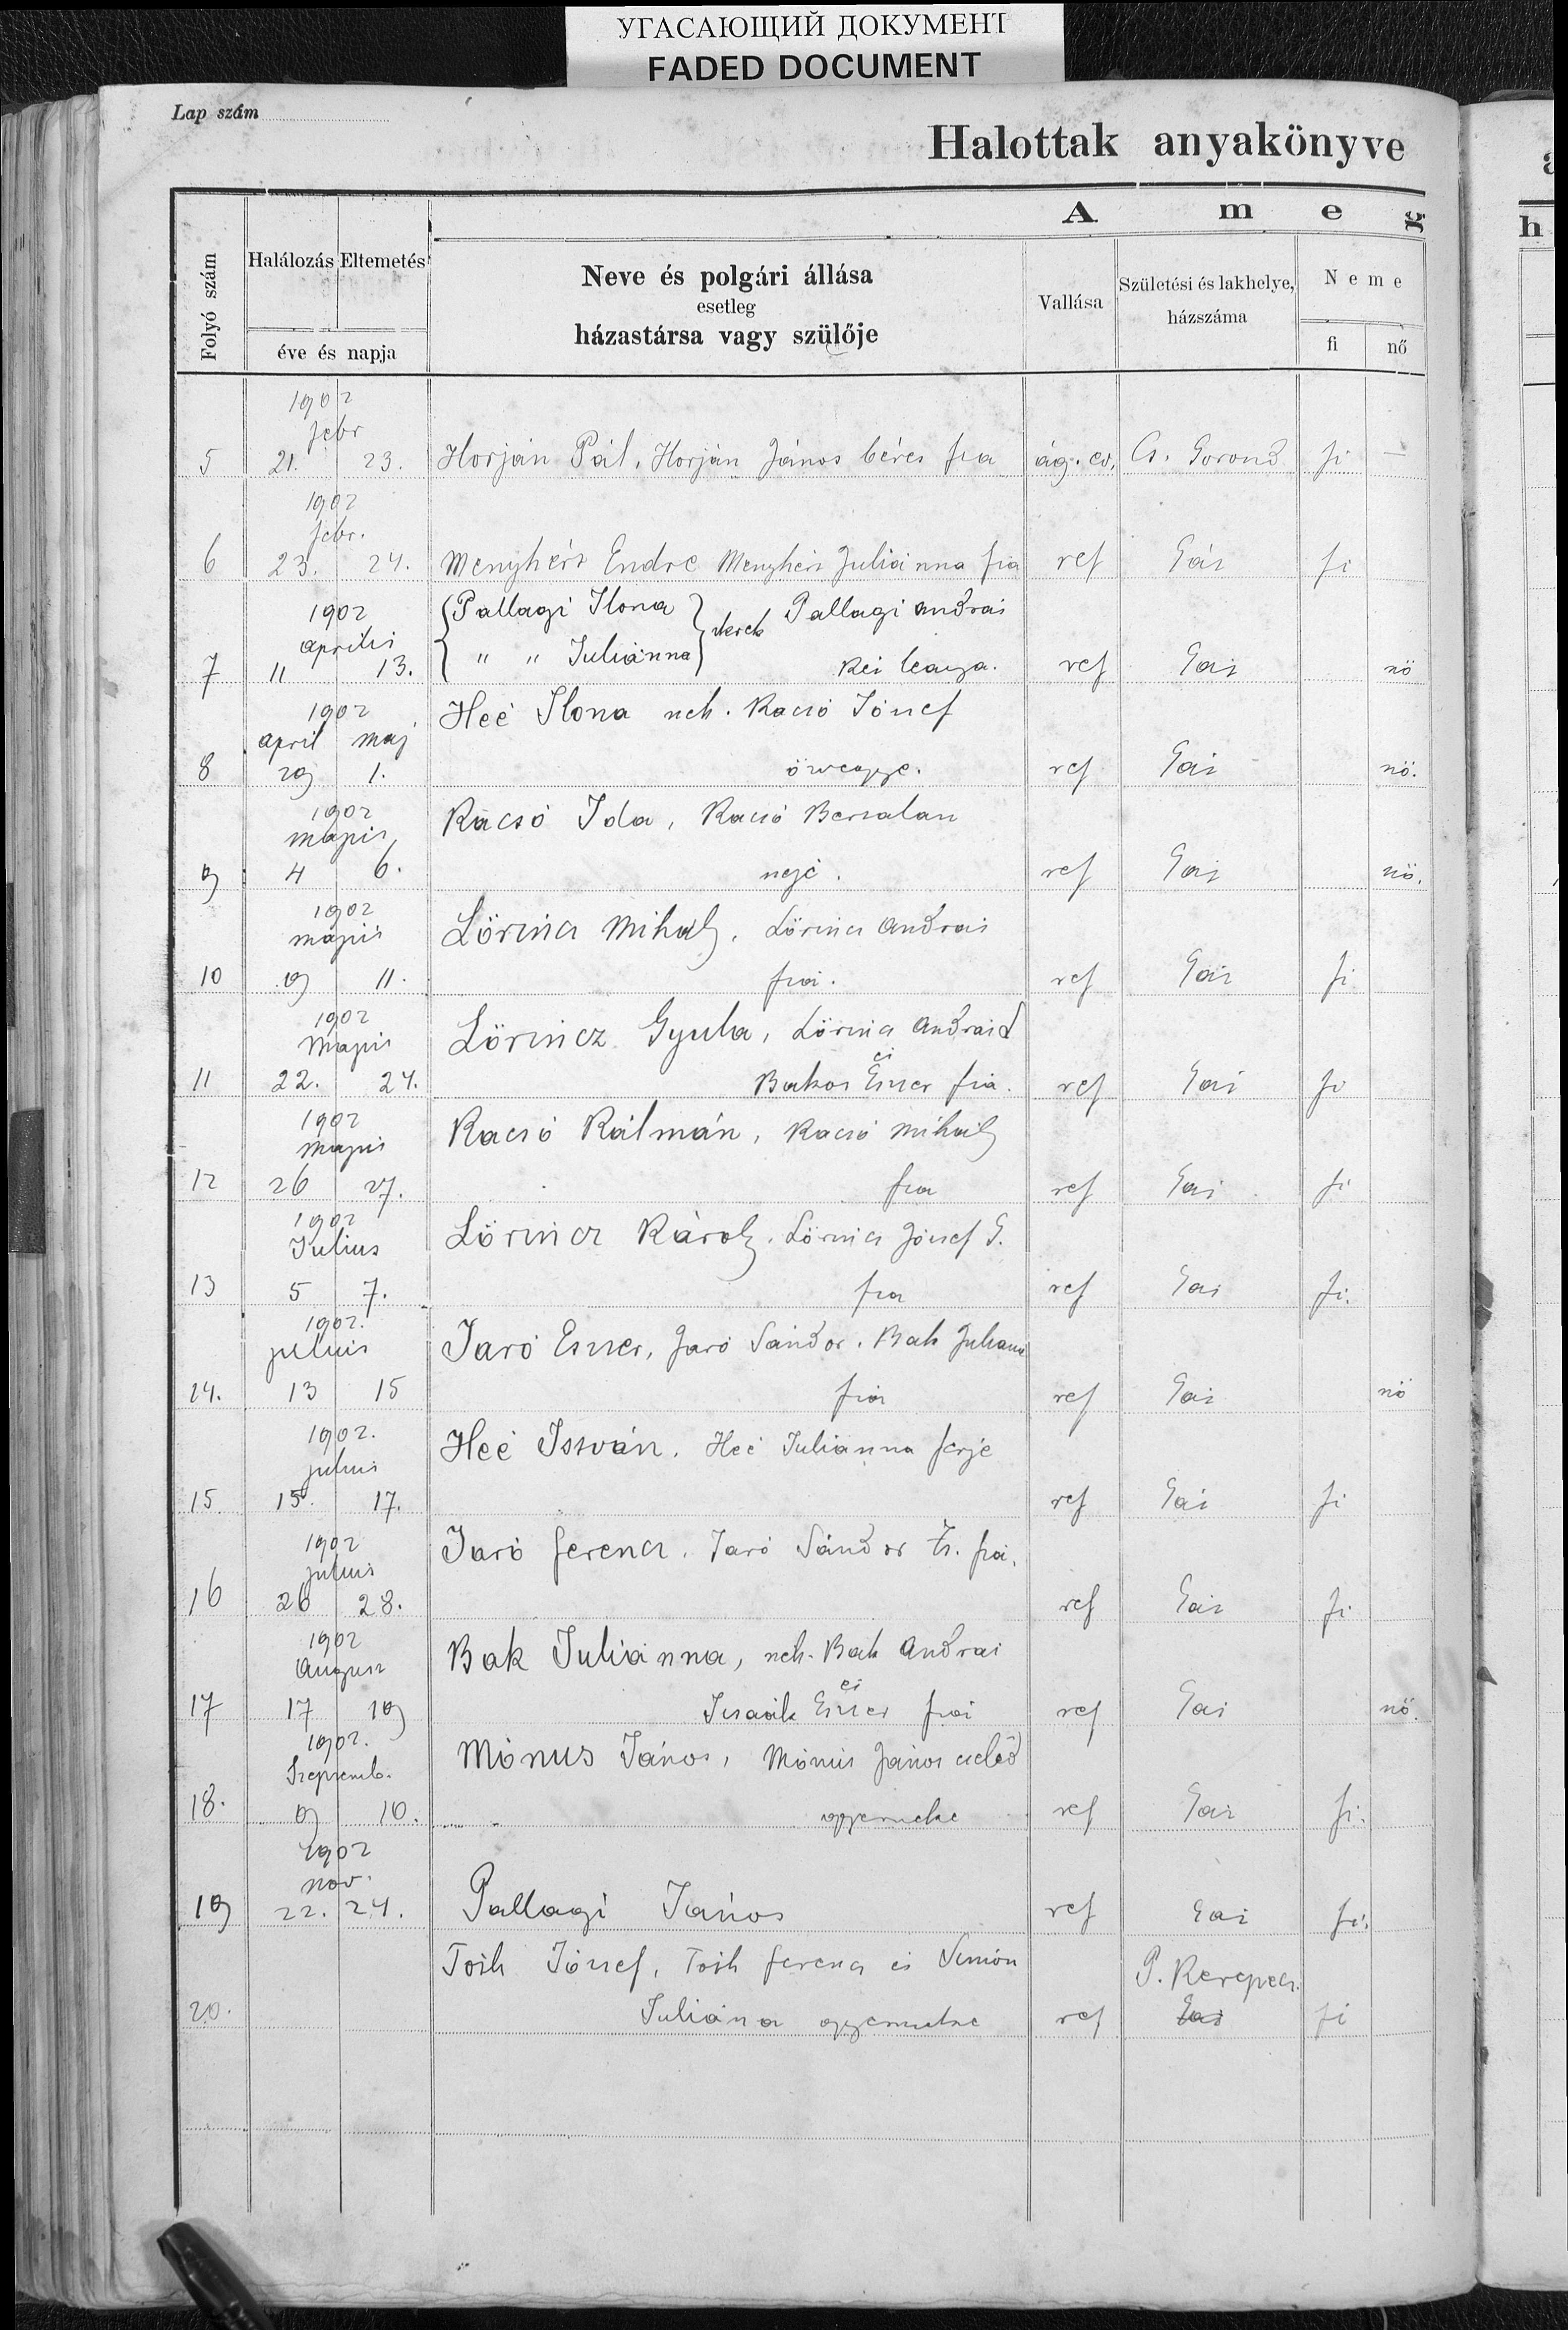 УГАСАЮЩИЙ ДОКУМЕНТ
FADED DOCUMENT
Lap szám
Halottak anyakönyve
A m e g
h
Folyó szám
Halálozás Eltemetés
éve és napja
Neve és polgári állása
esetleg
házastársa vagy szülője
Vallása
Születési és lakhelye,
házszáma
Neme
fi nő
1902
febr
5 21. 23. Horján Pál, Horján János béres fia ág. ev. Cs. Gorond fi —
1902
febr.
6 23. 24. Menyhért Endre Menyhért Juliánna fia ref Gát fi
1902 Pallagi Ilona Pallagi András
aprilis ikrek
7 11 13. " " Juliánna két leánya. ref Gát nő
1902 Heé Ilona neh. Kacsó József
april máj
8 29 1. özvegye. ref Gát nő.
1902 Kacsó Ida, Kacsó Bertalan
május
9 4 6. nejé. ref Gát nő.
1902
május Lőrincz Mihály, Lőrincz András
10 9 11. fia. ref Gát fi
1902
Május Lőrincz Gyula, Lőrincz András
és
11 22. 24. Bakos Eszter fia. ref Gát fi
1902
Május Kacsó Kálmán, Kacsó Mihály
12 26 27. fia ref Gát fi
1902
Julius Lőrincz Károly, Lőrincz József G.
13 5 7. fia ref Gát fi.
1902.
julius Jaró Eszter, Jaró Sándor, Bak Juliana
14. 13 15 fia ref Gát nő
1902. Heé István, Heé Juliánna férje
julius
15 15. 17. ref Gát fi
1902 Jaró Ferencz, Jaró Sándor Zs. fia.
julius
16 26 28. ref Gát fi
1902
August Bak Juliánna, neh. Bak András
és
17 17 19 Eszter ref Gát nő.
1902. Mónus János, Mónus János cseléd
Szeptemb.
18. 9 10. gyermeke ref Gát fi.
1902
nov.
19 22. 24. Pallagi János ref Gát fi.
Tóth József, Tóth Ferencz és Simon
P. Kerepecz.
20. Juliána gyermeke ref Gát fi